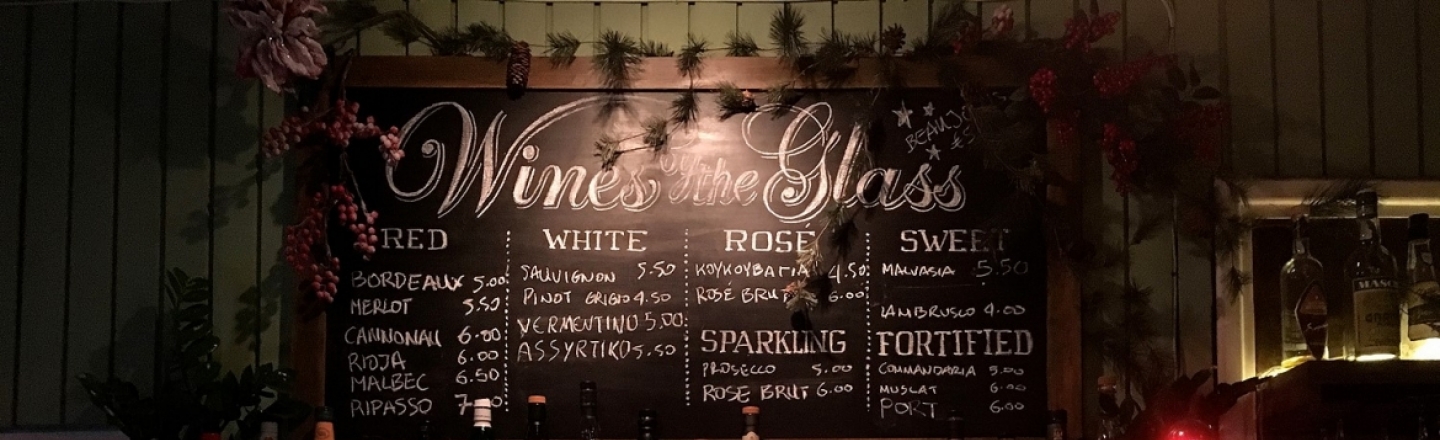 Wines by the Glass
RED
BORDEAUX 5.00
MERLOT 5.50
CANNONAU 6.00
RIOJA 6.00
MALBEC 6.50
RIPASSO
WHITE
SAUVIGNON 5.50
PINOT GRIGIO 4.50
VERMENTINO 5.00
ASSYRTIKO 5.50
ROSÉ
ΚΟΥΚΟΥΒΑΓΙΑ 4.50
ROSÉ BRUT 6.00
SPARKLING
PROSECCO 5.00
ROSE BRUT 6.00
SWEET
MALVASIA 5.50
LAMBRUSCO 4.00
FORTIFIED
COMMANDARIA 5.00
MUSCAT 6.00
PORT 6.00